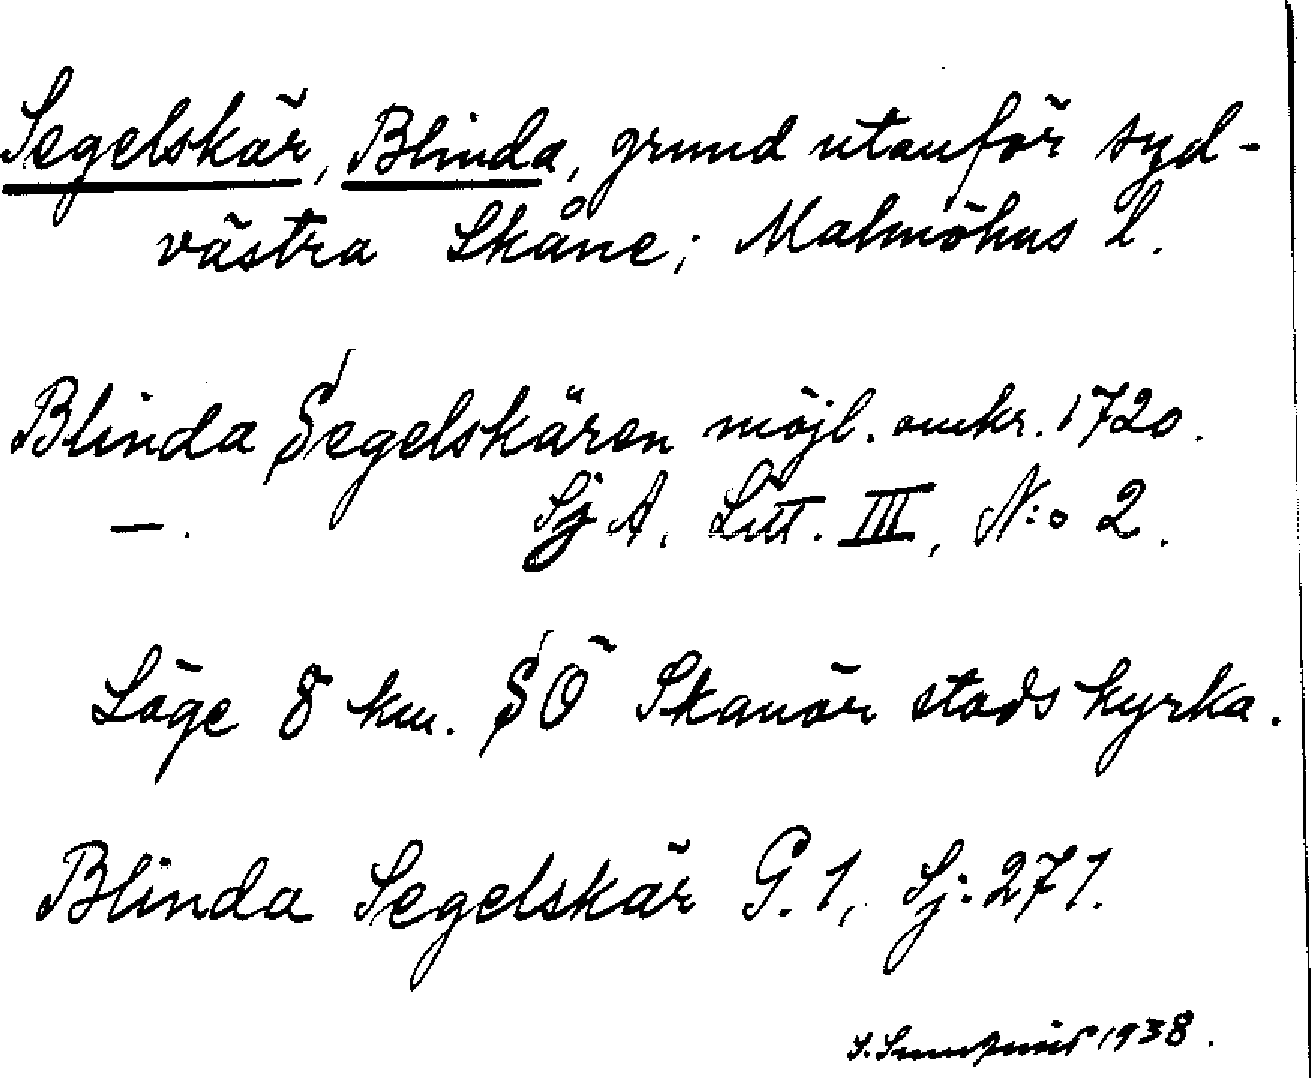 Segelskär, Blinda, grund utanför syd-
västra Skåne; Malmöhus l.
Blinda Segelskären möjl. omkr. 1720.
—. SjA. Litt. III, N:o 2.
Läge 8 km. SÖ Skanör stads kyrka.
Blinda Segelskär G. 1, Sj: 271.
1938.